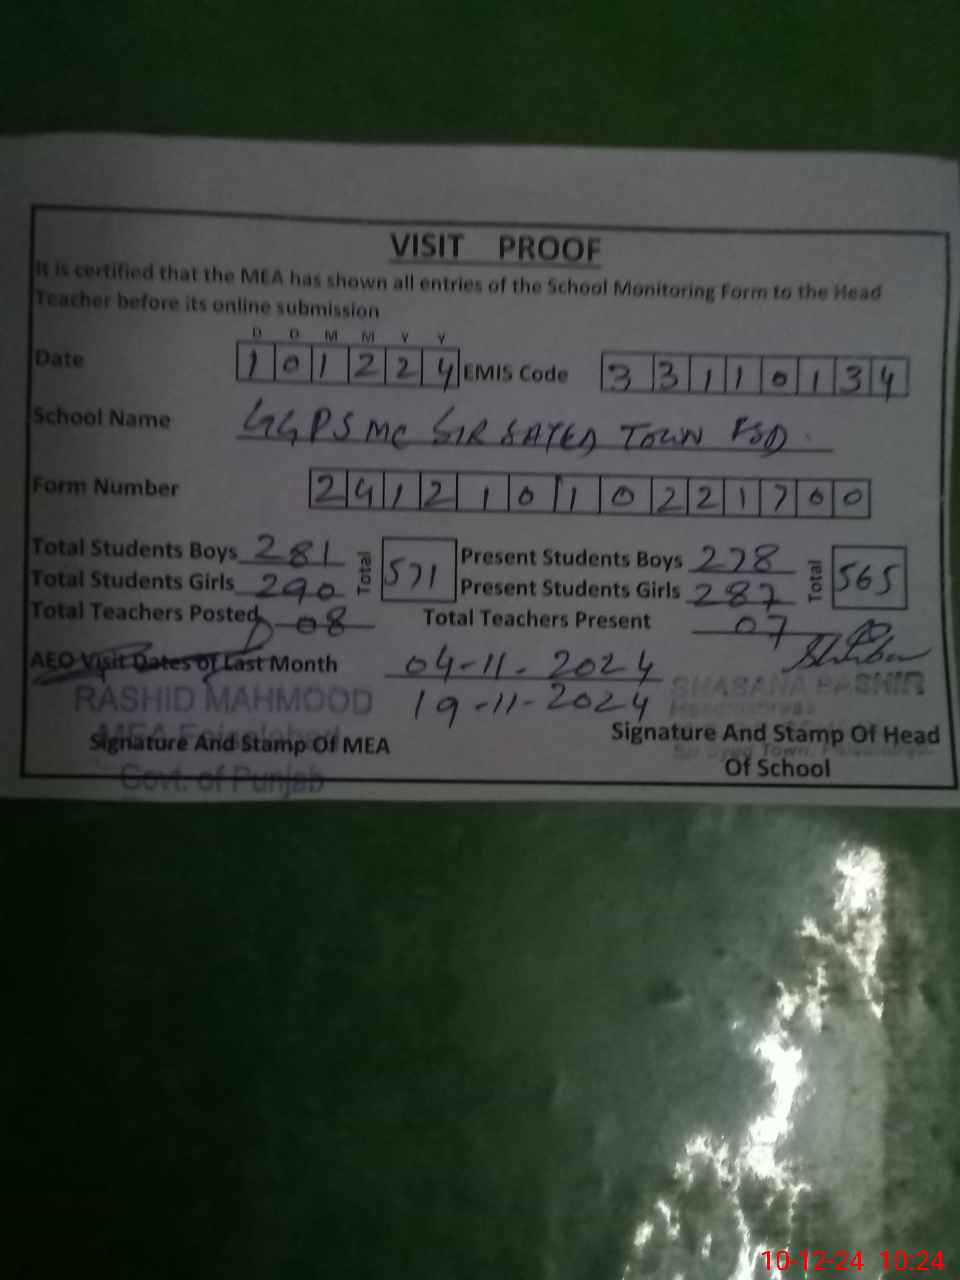 VISIT PROOF
It is certified that the MEA has shown all entries of the School Monitoring Form to the Head
Teacher before its online submission
D D M M Y Y
Date 1 0 1 2 2 4 EMIS Code 3 3 1 1 0 1 3 4
School Name GGPS MC SIR SAYED TOWN FSD.
Form Number 2 4 1 2 1 0 1 0 2 2 1 7 0 0
Total Students Boys 281 Total 571 Present Students Boys 278 Total 565
Total Students Girls 290 Present Students Girls 287
Total Teachers Posted 08 Total Teachers Present 07
AEO Visit Dates of Last Month 04-11-2024
19-11-2024
RASHID MAHMOOD SHABANA BASHIR
MEA Faisalabad
Signature And Stamp Of MEA Signature And Stamp Of Head
Of School
Govt. of Punjab
10-12-24 10:24